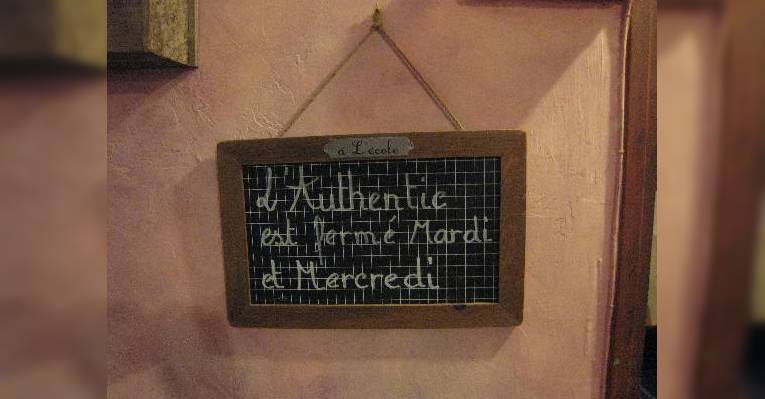 à L'école
L'Authentic
est fermé Mardi
et Mercredi